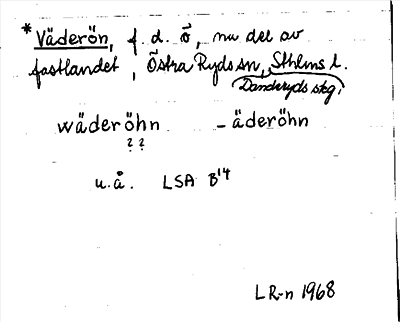 * Väderön, f. d. ö, nu del av
fastlandet, Östra Ryds sn, Sthlms l.
Danderyds skg,
wäderöhn – äderöhn
? ?
u.å. LSA B14
LR-n 1968